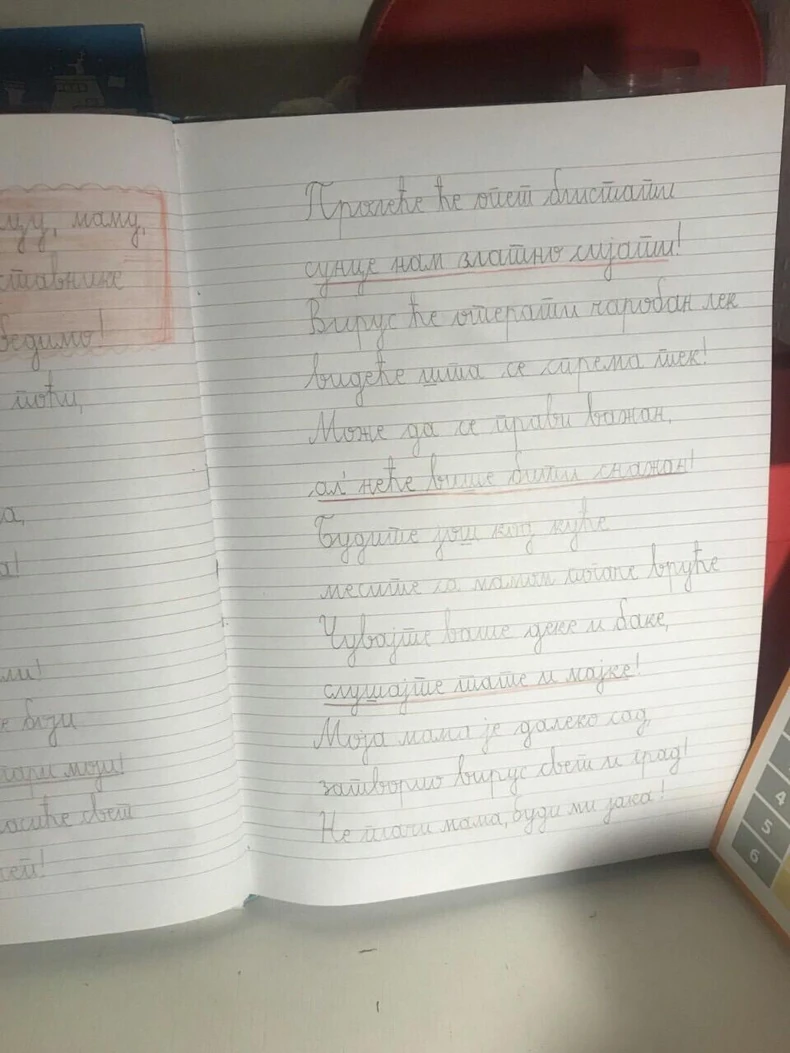 цу, маму,
ставнике
бедимо!
поћи,
а,
а!
ли!
е боји
гари моји!
асиће свет
еп!
Пролеће ће опет блистати
сунце нам златно сијати!
Вирус ће отерати чаробан лек
видеће шта се спрема тек!
Може да се прави важан,
ал' неће више бити снажан!
Будите још код куће
месите са мамом погаче вруће
Чувајте ваше деке и баке,
слушајте тате и мајке!
Моја мама је далеко сад,
затворио вирус свет и град!
Не плачи мама, буди ми јака!
4
5
6